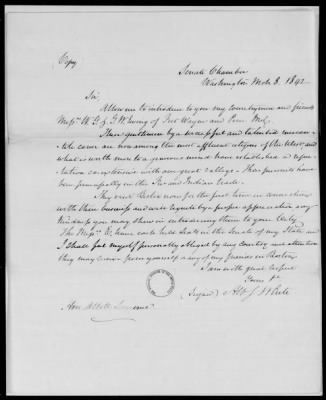 Copy
Senate Chamber
Washington Mch 8. 1842
Sir
Allow me to introduce to you my countrymen and friends
Messrs W. G. & G. W. Ewing of Fort Wayne and Peru Ind.
These gentlemen by a successful and talented mercan-
tile career are now among the most affluent citizens of the West, and
what is worth more to a generous mind have established a repu-
tation coextensive with our great valleys. Their pursuits have
been principally in the Fur and Indian trade.
They visit Boston now for the first time in connection
with their business and will requite by a proper appreciation any
kindness you may show in introducing them to your City.
The Messrs E. have each held seats in the Senate of my State and
I shall feel myself personally obliged by any courtesy and attention
they may receive from yourself or any of my friends in Boston.
I am with great respect
Yours &c
(Signed) Alb. S. White
Hon Abbott Lawrence